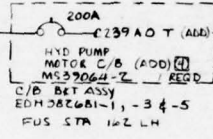 200A
C239 A O T (ADD)
HYD PUMP
MOTOR C/B (ADD) 4
MS39064-2 1 REQD
C/B BKT ASSY
EDH382681-1, -3 & -5
FUS STA 162 LH